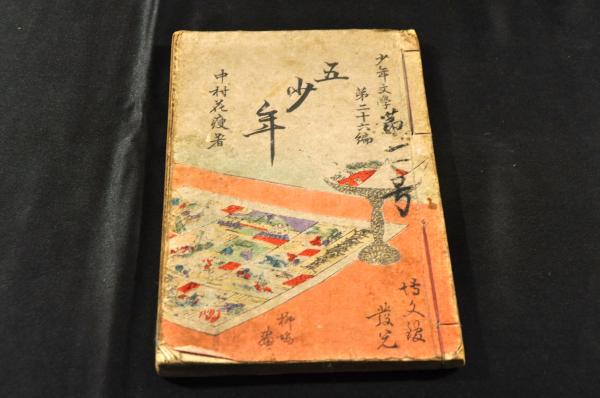 少年文學
第二十六編
五少年
中村花痩著
博文舘
發兌